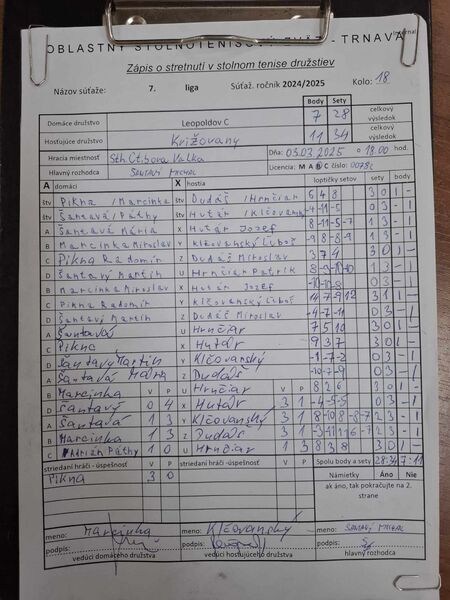 OBLASTNÝ STOLNOTENISOVÝ ZVÄZ - TRNAVA
Zápis o stretnutí v stolnom tenise družstiev
Názov súťaže: 7. liga Súťaž. ročník 2024/2025 Kolo: 18
Body Sety
Domáce družstvo Leopoldov C 7 28 celkový výsledok
Hosťujúce družstvo Križovany 11 34 celkový výsledok
Hracia miestnosť Sth. Ctibora Valka Dňa: 03.03.2025 o 18.00 hod.
Hlavný rozhodca Šantavý Michal Licencia: A B C číslo:
A domáci X hostia loptičky setov sety body
štv Pikna / Marcinka štv Dudáš / Hrnčiar 6 4 8 3 0 1 -
štv Šantavá / Páthy štv Hutár / Klčovanský -4 -11 -5 0 3 - 1
A Šantavá Mária X Hutár Jozef 1 3 - 1
B Marcinka Miroslav Y Klčovanský Ľuboš 1 3 - 1
C Pikna Radomír Z Dudáš Miroslav 3 7 4 3 0 1 -
D Šantavý Martin U Hrnčiar Patrik 1 3 - 1
B Marcinka Miroslav X Hutár Jozef 0 3 - 1
C Pikna Radomír Y Klčovanský Ľuboš 3 1 1 -
D Šantavý Martin Z Dudáš Miroslav -4 -7 -11 0 3 - 1
A Šantavá U Hrnčiar 7 5 10 3 0 1 -
C Pikna X Hutár 9 3 7 3 0 1 -
D Šantavý Martin Y Klčovanský -1 -7 -2 0 3 - 1
A Šantavá Mária Z Dudáš -10 -7 -9 0 3 - 1
B Marcinka V P U Hrnčiar V P 8 2 6 3 0 1 -
D Šantavý 0 4 X Hutár 3 1 -4 -5 -5 0 3 - 1
A Šantavá 1 3 Y Klčovanský 3 1 8 -10 8 -8 -7 2 3 - 1
B Marcinka 1 3 Z Dudáš 3 1 2 3 - 1
C Adrian Páthy 1 0 U Hrnčiar 1 3 8 3 8 3 0 1 -
striedaní hráči - úspešnosť V P striedaní hráči - úspešnosť V P Spolu body a sety 28:34 7-11
Pikna 3 0 Námietky Áno Nie
ak áno, tak pokračujte na 2. strane
meno: Marcinka meno: Klčovanský meno: Šantavý Michal
podpis: podpis: podpis:
vedúci domáceho družstva vedúci hosťujúceho družstva hlavný rozhodca